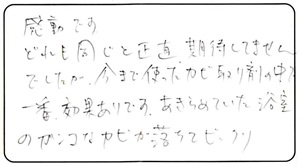 感動です
どれも同じと正直期待してません
でしたが、今まで使ったカビ取り剤の中で
一番効果ありです。あきらめていた浴室
のガンコなカビが落ちてビックリ